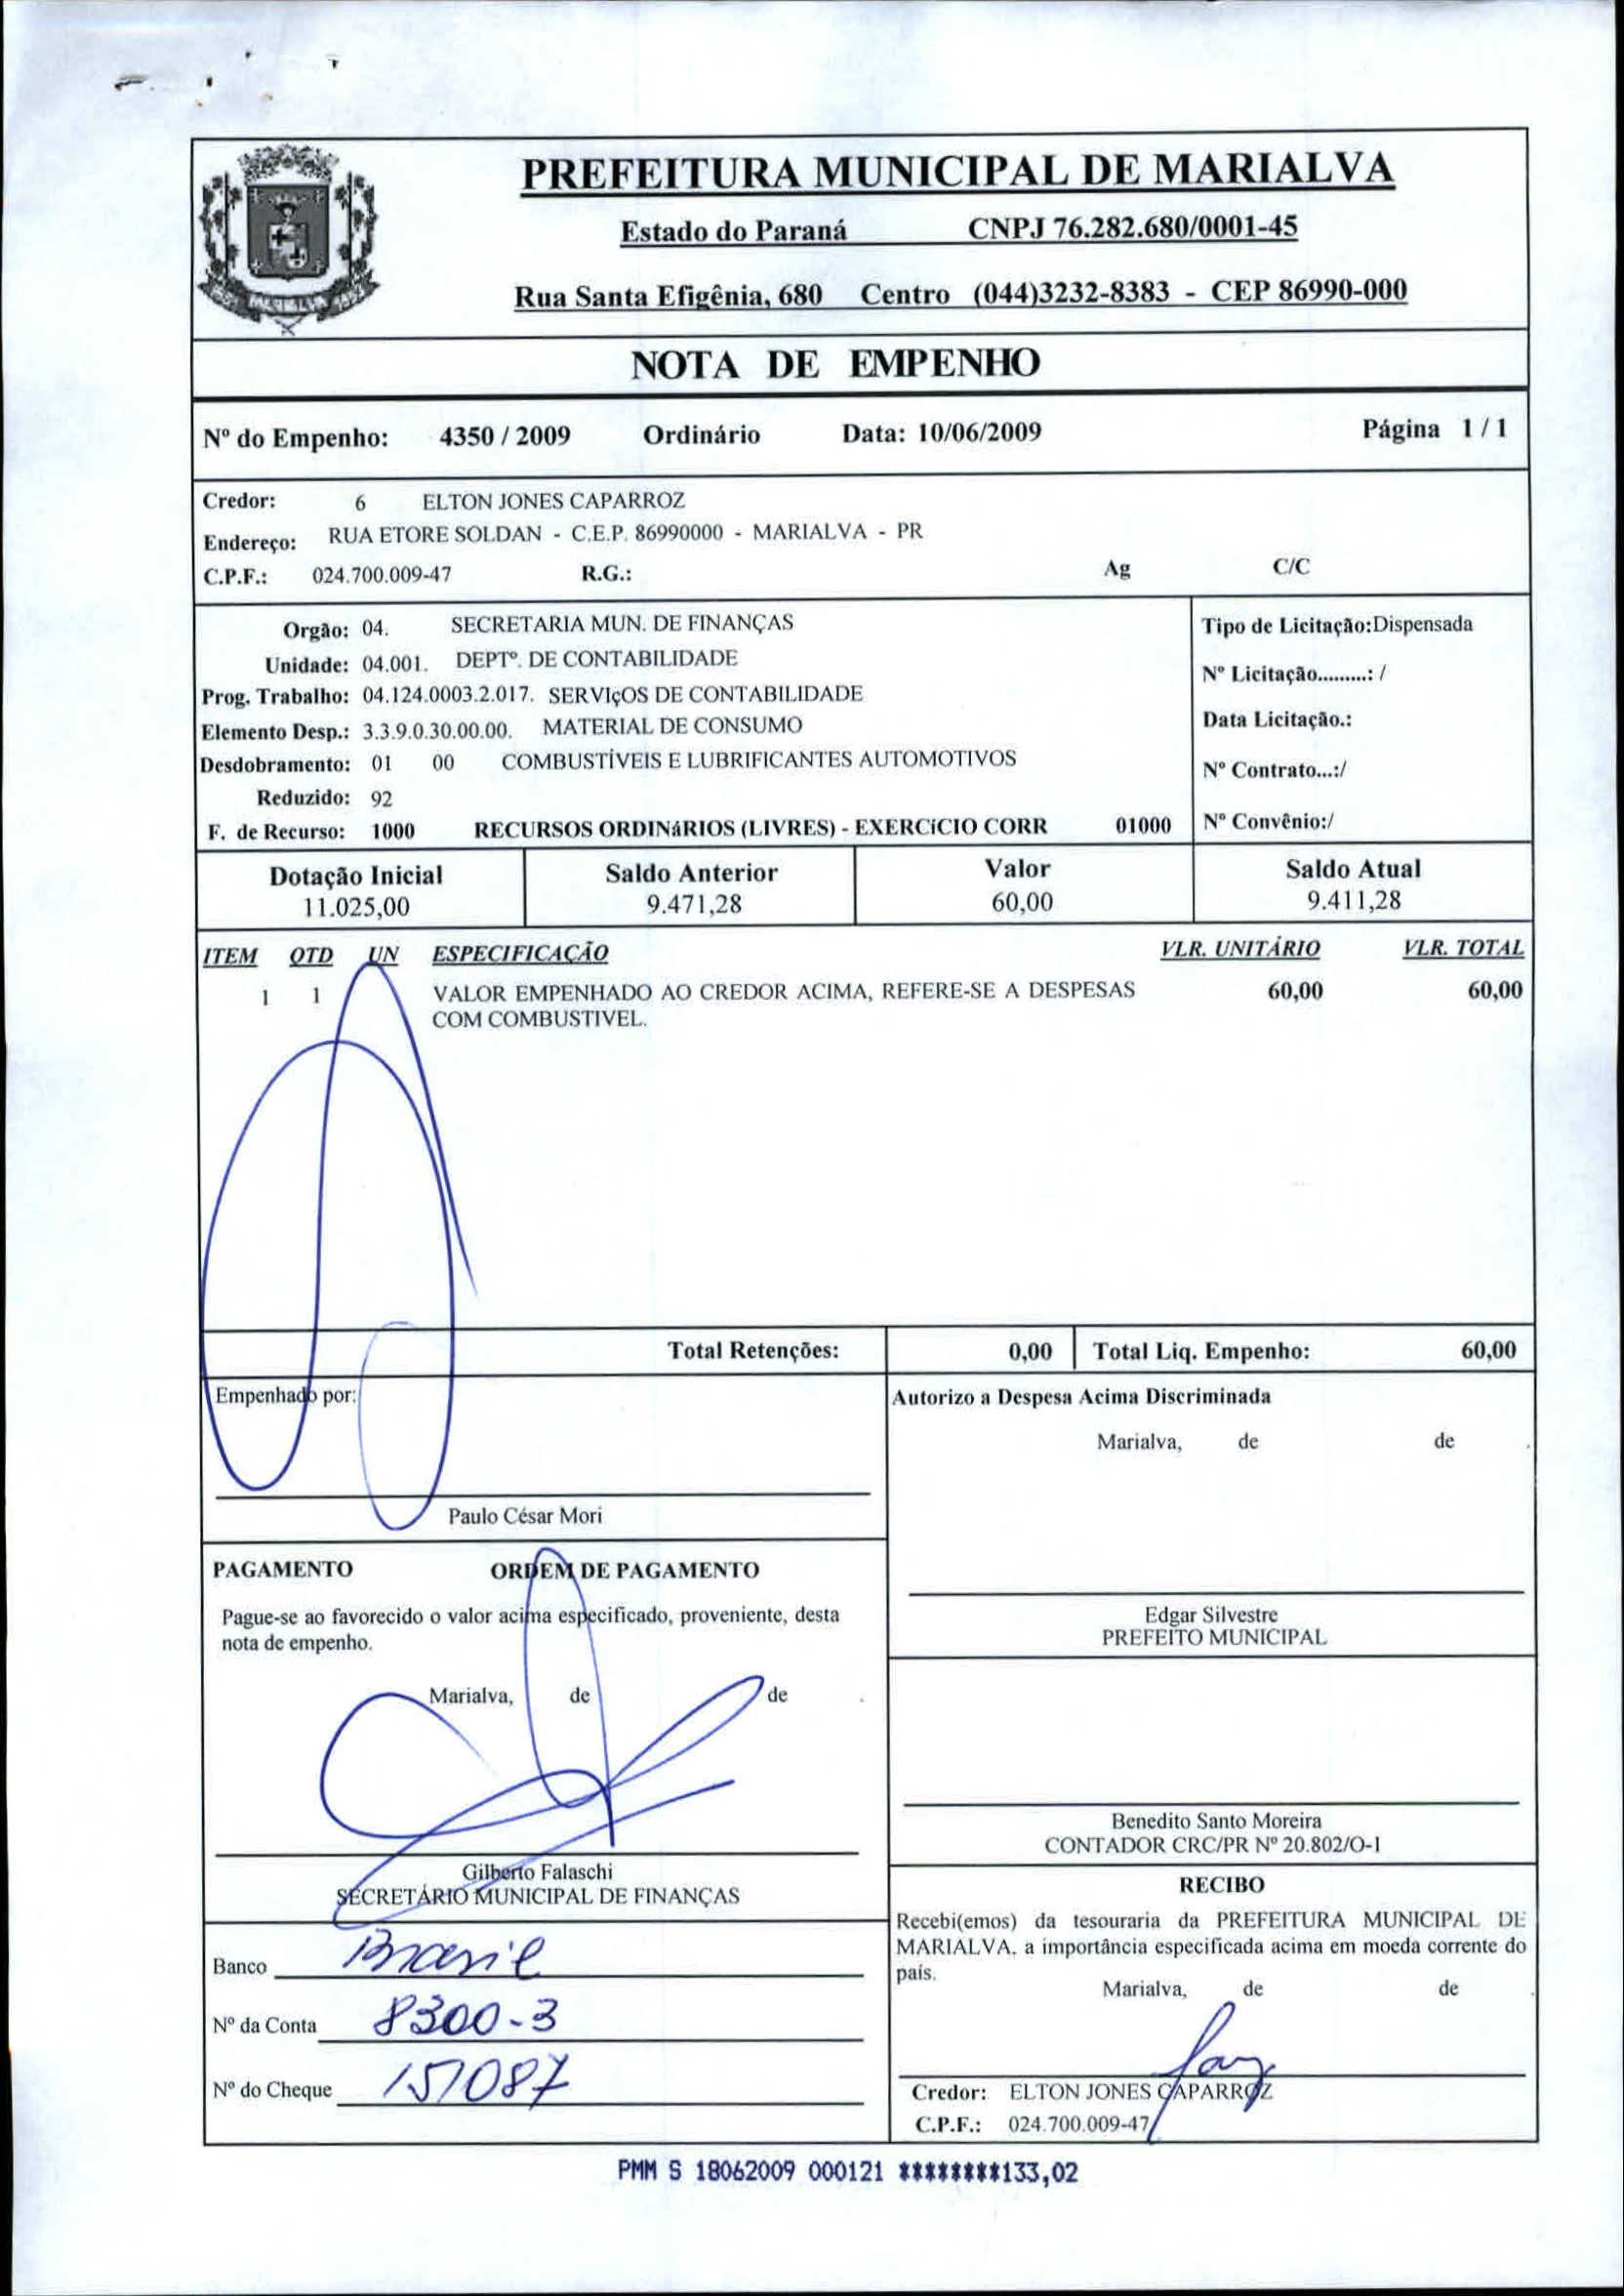 PREFEITURA MUNICIPAL DE MARIALVA
Estado do Paraná CNPJ 76.282.680/0001-45
Rua Santa Efigênia, 680 Centro (044)3232-8383 - CEP 86990-000
NOTA DE EMPENHO
Nº do Empenho: 4350 / 2009 Ordinário Data: 10/06/2009 Página 1 / 1
Credor: 6 ELTON JONES CAPARROZ
Endereço: RUA ETORE SOLDAN - C.E.P. 86990000 - MARIALVA - PR
C.P.F.: 024.700.009-47 R.G.: Ag C/C
Orgão: 04. SECRETARIA MUN. DE FINANÇAS
Unidade: 04.001. DEPTº. DE CONTABILIDADE
Prog. Trabalho: 04.124.0003.2.017. SERVIçOS DE CONTABILIDADE
Elemento Desp.: 3.3.9.0.30.00.00. MATERIAL DE CONSUMO
Desdobramento: 01 00 COMBUSTÍVEIS E LUBRIFICANTES AUTOMOTIVOS
Reduzido: 92
F. de Recurso: 1000 RECURSOS ORDINáRIOS (LIVRES) - EXERCíCIO CORR 01000
Tipo de Licitação:Dispensada
Nº Licitação.........: /
Data Licitação.:
Nº Contrato...:/
Nº Convênio:/
Dotação Inicial Saldo Anterior Valor Saldo Atual
11.025,00 9.471,28 60,00 9.411,28
ITEM QTD UN ESPECIFICAÇÃO VLR. UNITÁRIO VLR. TOTAL
1 1 VALOR EMPENHADO AO CREDOR ACIMA, REFERE-SE A DESPESAS 60,00 60,00
COM COMBUSTIVEL.
Total Retenções: 0,00 Total Liq. Empenho: 60,00
Empenhado por:
Paulo César Mori
Autorizo a Despesa Acima Discriminada
Marialva, de de .
Edgar Silvestre
PREFEITO MUNICIPAL
PAGAMENTO ORDEM DE PAGAMENTO
Pague-se ao favorecido o valor acima especificado, proveniente, desta
nota de empenho.
Marialva, de de .
Gilberto Falaschi
SECRETÁRIO MUNICIPAL DE FINANÇAS
Benedito Santo Moreira
CONTADOR CRC/PR Nº 20.802/O-1
Banco Brasil
Nº da Conta 8300-3
Nº do Cheque 151087
RECIBO
Recebi(emos) da tesouraria da PREFEITURA MUNICIPAL DE
MARIALVA, a importância especificada acima em moeda corrente do
país.
Marialva, de de .
Credor: ELTON JONES CAPARROZ
C.P.F.: 024.700.009-47
PMM S 18062009 000121 ********133,02